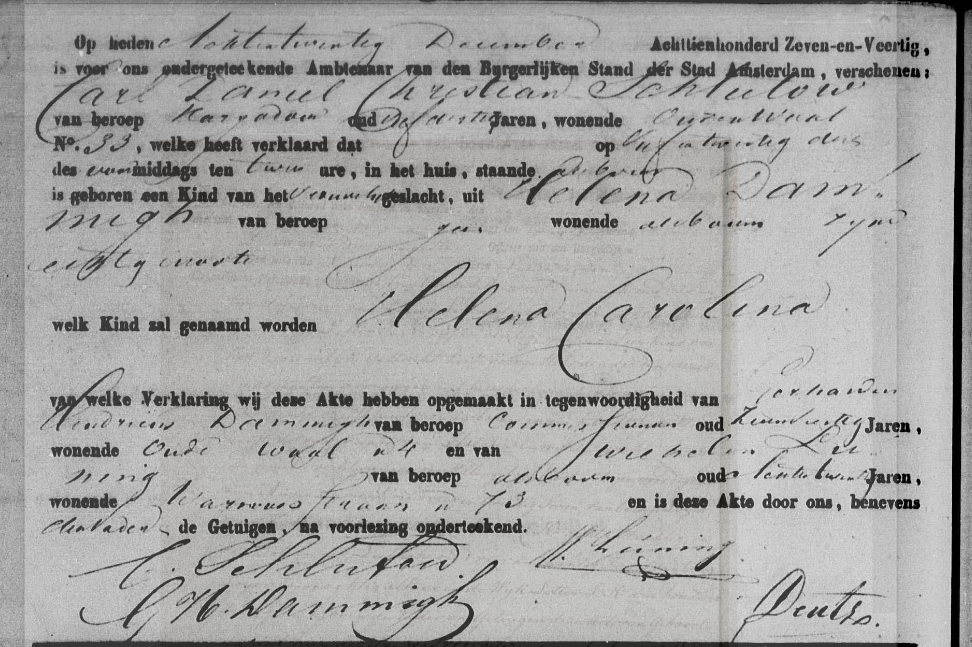 Op heden Achtentwintig December Achttienhonderd Zeven-en-Veertig,
is voor ons ondergeteekende Ambtenaar van den Burgerlijken Stand der Stad Amsterdam, verschenen:
Carl Daniel Christian Schlutow
van beroep oud Jaren, wonende Ouden Waal
No. 33, welke heeft verklaard dat op
des voormiddags ten twee ure, in het huis, staande alsboven
is geboren een Kind van het Vrouwelijk geslacht, uit Helena Dam-
migh van beroep geen wonende alsboven zijne
echtgenoote
welk Kind zal genaamd worden Helena Carolina
van welke Verklaring wij deze Akte hebben opgemaakt in tegenwoordigheid van Gerhardus
Hendricus Dammigh van beroep oud Jaren,
wonende Oude Waal n 4 en van Wilhelm Lu-
ning van beroep alsboven oud Jaren,
wonende Warmoesstraat n 73 en is deze Akte door ons, benevens
den vader de Getuigen, na voorlezing onderteekend.
C. Schlutow. W. Lüning
G H. Dammigh